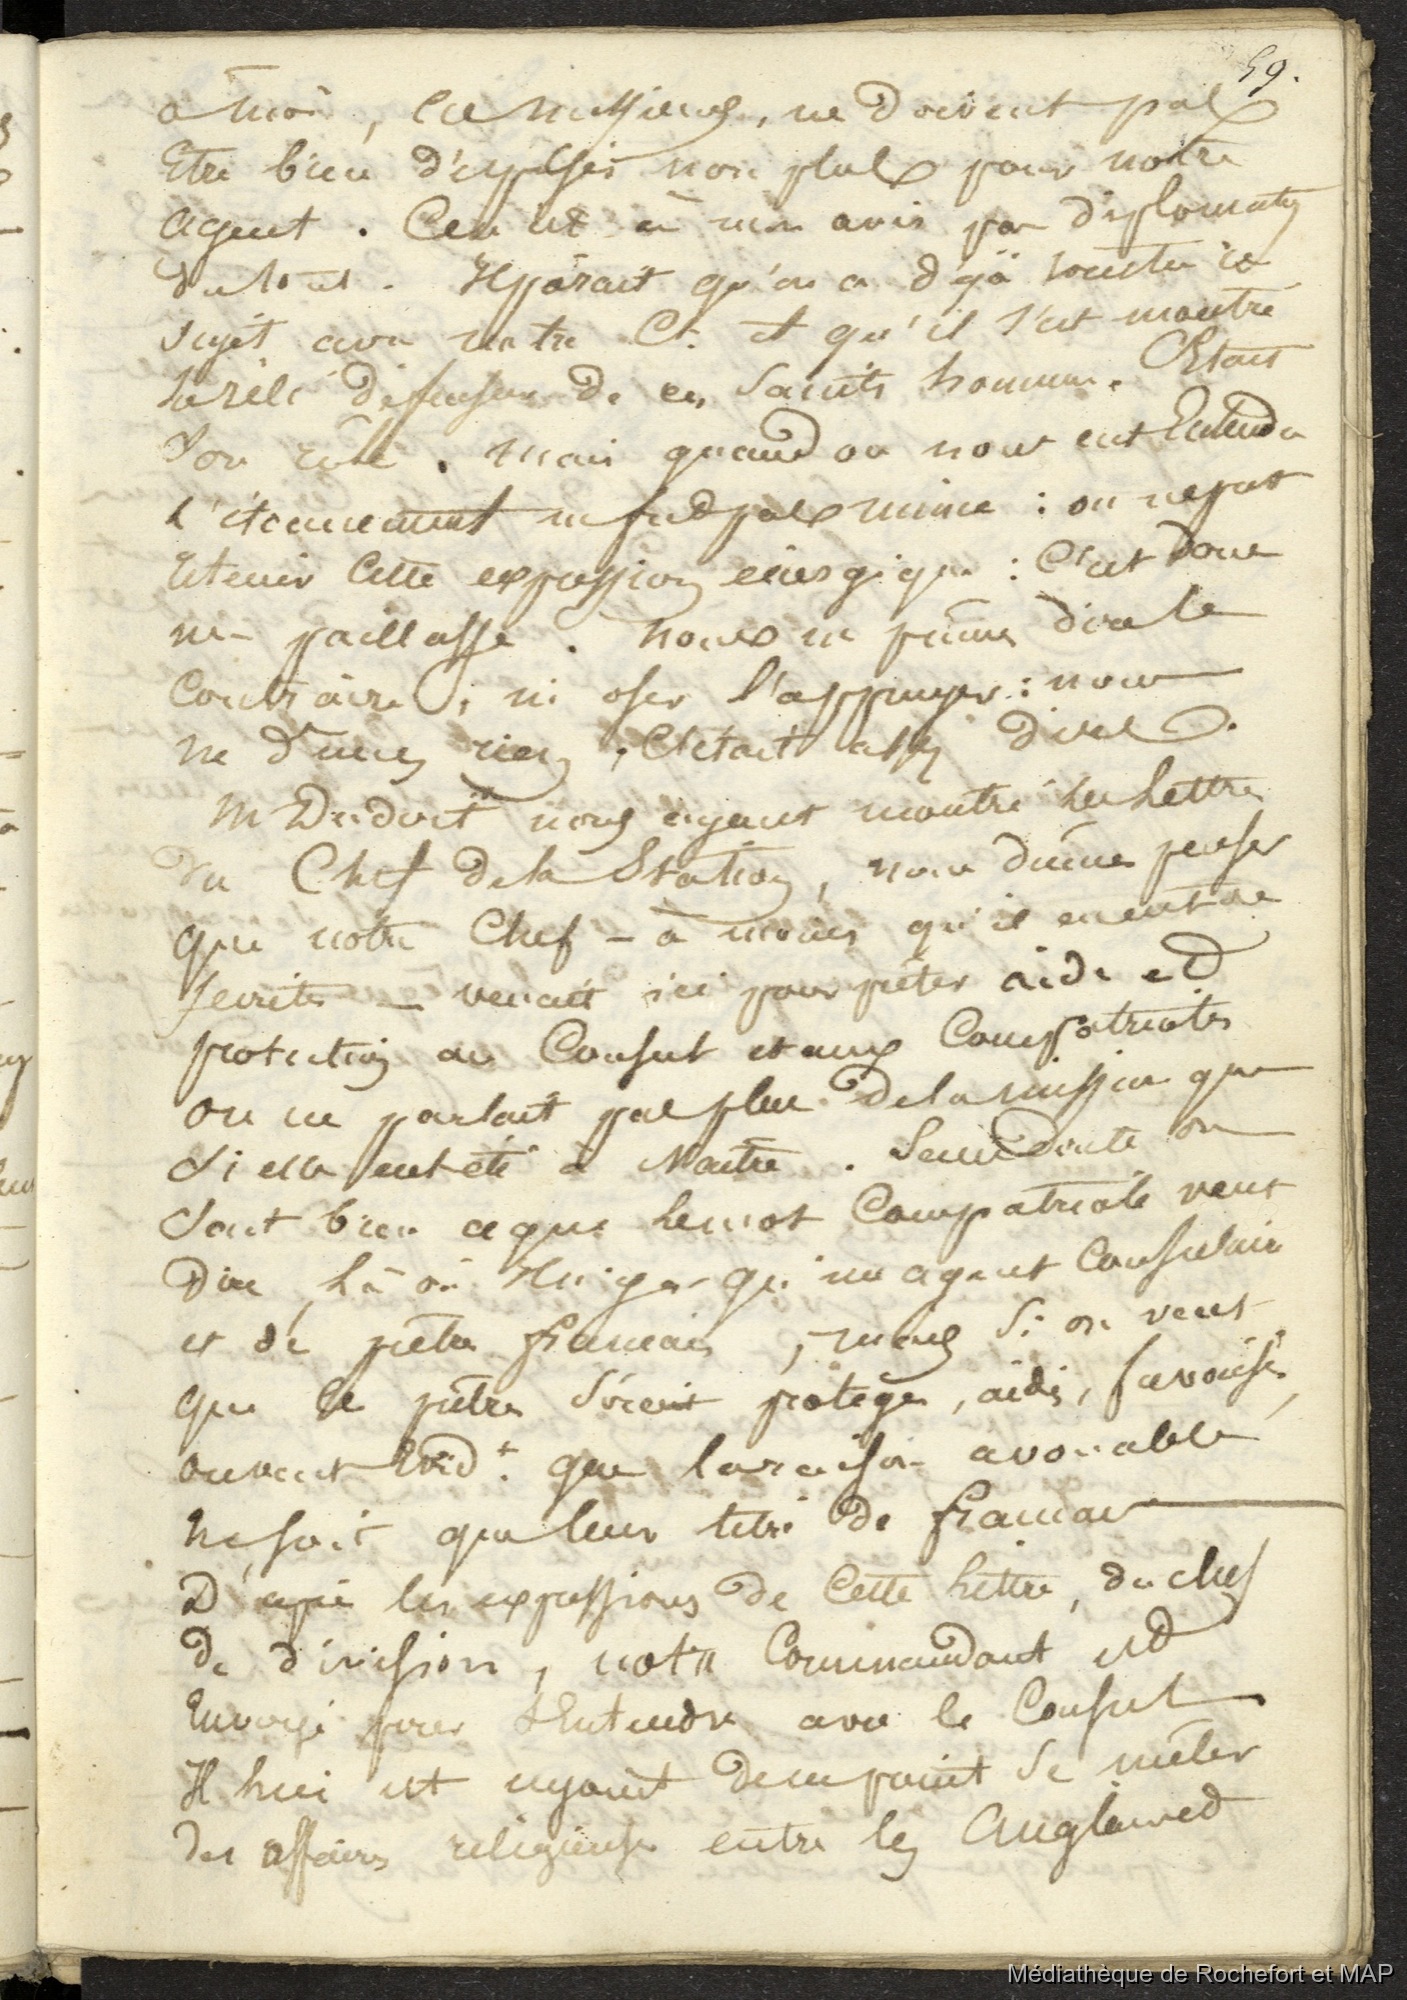 59.
à moi, ces messieurs, ne doivent pas
Etre bien disposés non plus pour notre
agent. Ceci est à mon avis pas diplomate
du tout. Il parait qu'on a déjà touché ce
sujet avec notre Ct. et qu'il s'est montré
le zélé défenseur de ces saints hommes. C'Etait
son rôle. Mais quand on nous eut Entendu
L'étonnement ne fut pas mince : on ne put
retenir cette expression énergique : C'est donc
une paillasse. Nous ne pûmes dire le
Contraire, ni oser l'appuyer : nous
ne dîmes rien, C'était assez dire.
Mr Dudoit nous ayant montré les Lettres
du Chef de la Station, nous dûmes penser
que notre Chef - à moins qu'il en eut de
secrètes - venait ici pour prêter aide et
protection au Consul et aux Compatriotes
on ne parlait pas plus de la mission que
si elle eut été à Nantes. Sans doute on
sait bien ce que le mot Compatriote veut
Dire là où Il n'y a qu'un agent Consulaire
et de prêtres français, mais si on veut
que les prêtres soient protégés, aidés, favorisés,
on veut Evidt. que la raison avouable
ne soit que leur titre de français
D'après les expressions de cette Lettre, du chef
de division, notre Commandant est
Envoyé pour s'Entendre avec le Consul
Il lui est enjoint de ne point se mêler
des affaires religieuses entre les Anglais et
Médiathèque de Rochefort et MAP